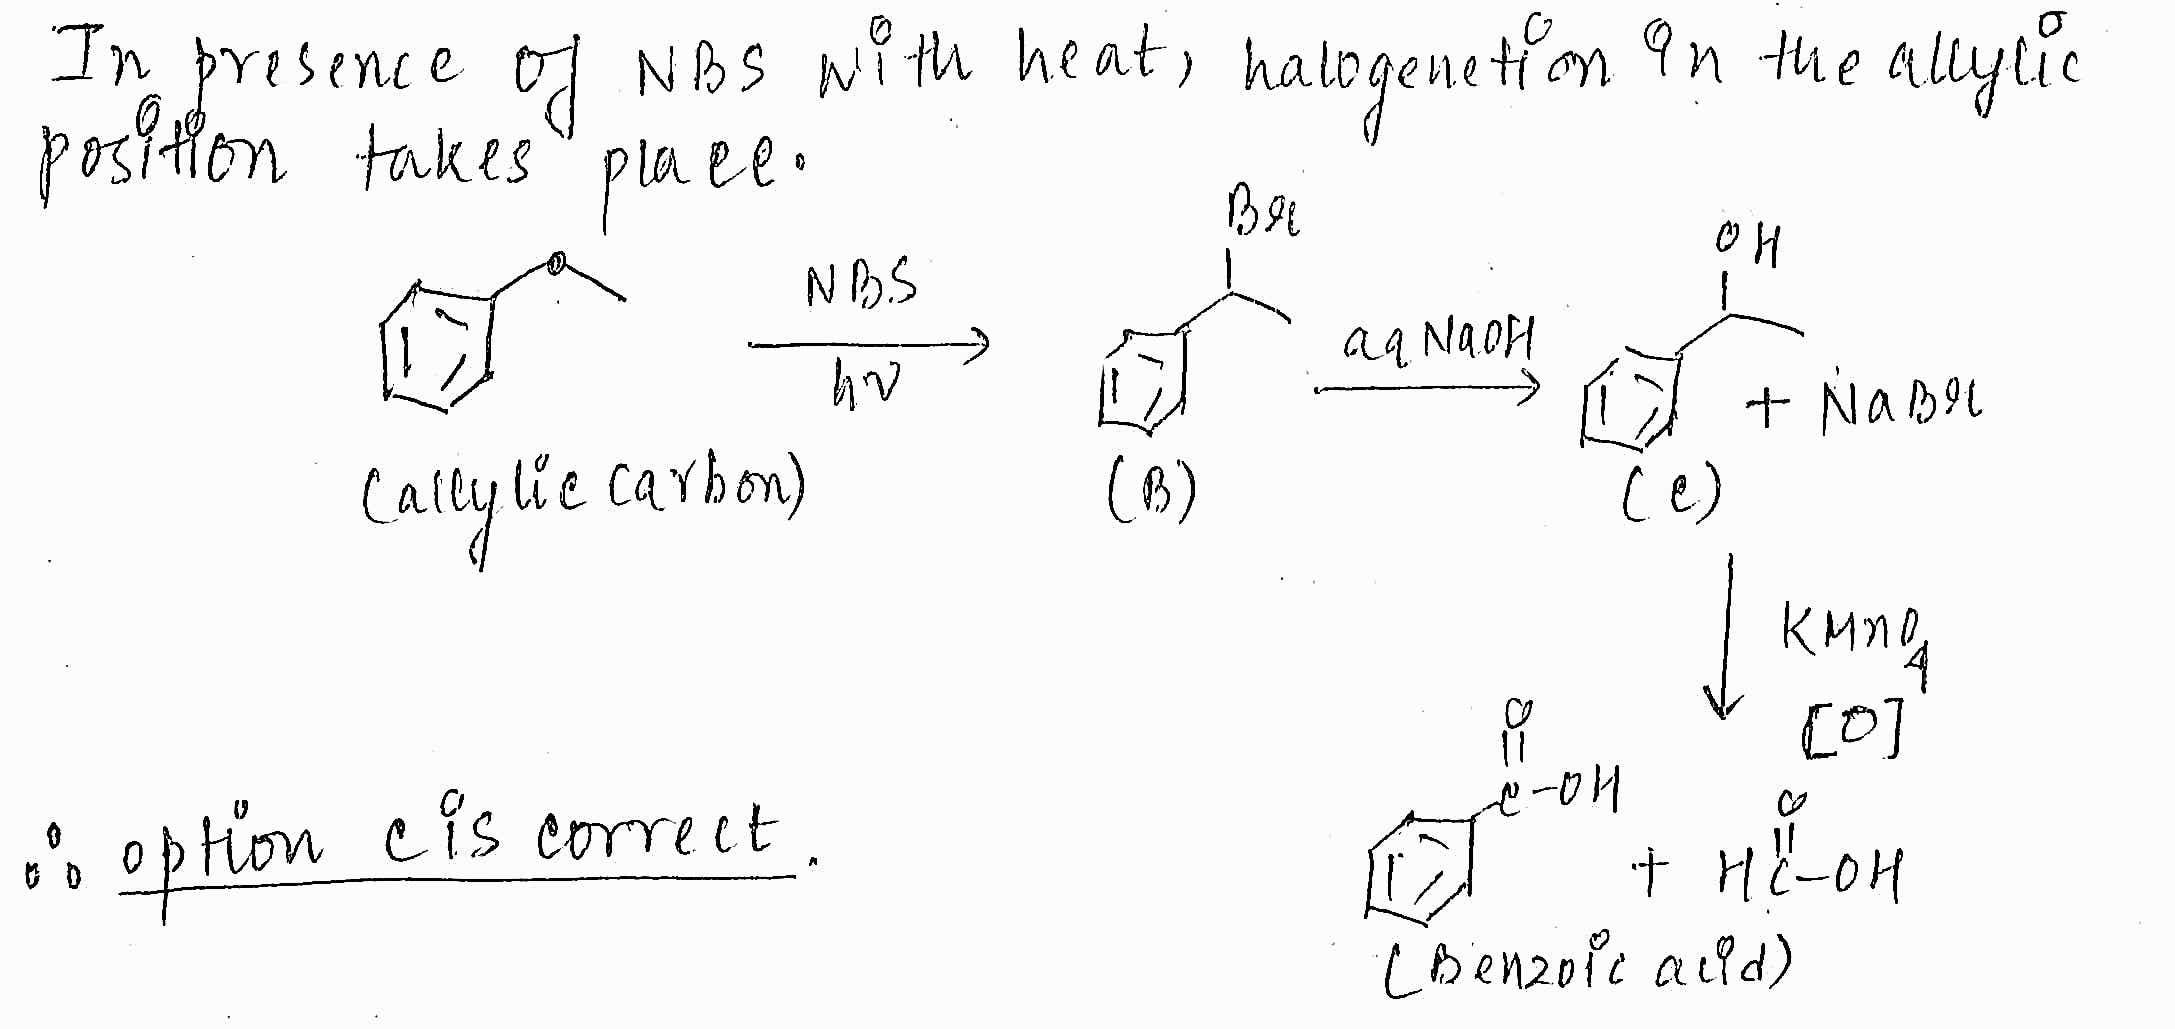 In presence of NBS with heat, halogenetion in the allylic
position takes place.
Br
OH
NBS
hν
aq NaOH
+ NaBr
(allylic carbon)
(B)
(c)
KMnO4
[O]
O
C-OH
O
+ HC-OH
(Benzoic acid)
∴ option c is correct.